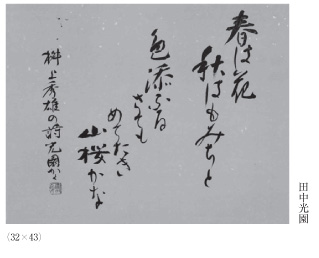 春は花
秋はもみちと
色添ふる
さても
めてたき
山桜かな
上秀雄の詩 光園かく
田中光園
(32×43)